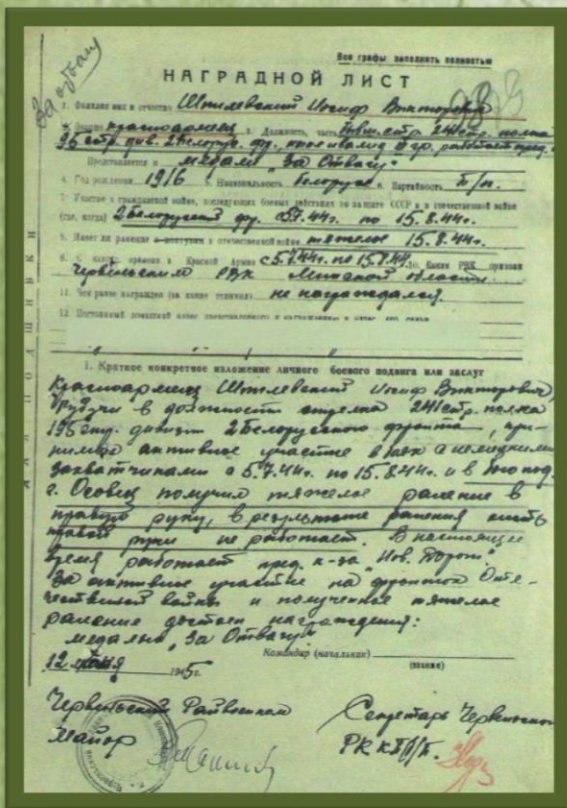 Все графы заполнить полностью
НАГРАДНОЙ ЛИСТ
1. Фамилия имя и отчество Штилевский Иосиф Викторович
красноармеец 3. Должность, часть стр. 241 стр. полка
95 стр. див. 2 Белорус. фр., ныне инвалид гр. работает пред.
Представляется к медали "За Отвагу"
4. Год рождения 1916 5. Национальность белорус 6. Партийность б/п.
7. Участие в гражданской войне, последующих боевых действиях по защите СССР и в отечественной войне
(где, когда) 2 Белорусский фр. с 5.7.44г. по 15.8.44г.
8. Имеет ли ранения в отечественной войне тяжелое 15.8.44г.
9. С какого времени в Красной Армии с 5.7.44г. по 15.8.44 10. Каким РВК призван
Червеньским РВК Минской области
11. Чем ранее награжден (за какие отличия) не награждался
12. Постоянный домашний адрес представляемого к награждению и адрес его семьи
1. Краткое конкретное изложение личного боевого подвига или заслуг
Красноармеец Штилевский Иосиф Викторович,
будучи в должности стрелка 241 стр. полка
195 стр. дивизии 2 Белорусского фронта, при-
нимал активное участие в боях с немецкими
захватчинами с 5.7.44г. по 15.8.44г. и в под
г. Осовец получил тяжелое ранение в
правую руку, в результате ранения кисть
правой руки не работает. В настоящее
время работает пред. к-за "Нов. ".
За активное участие на фронтах Оте-
чественной войны и полученное тяжелое
ранение достоин награждения:
медалью "За Отвагу"
Командир (начальник)
(звание)
12 1945г.
Червеньский Райвоенком
Майор
Секретарь Червеньского
РК КП(б)Б.
ДЛЯ ПОДШИВКИ